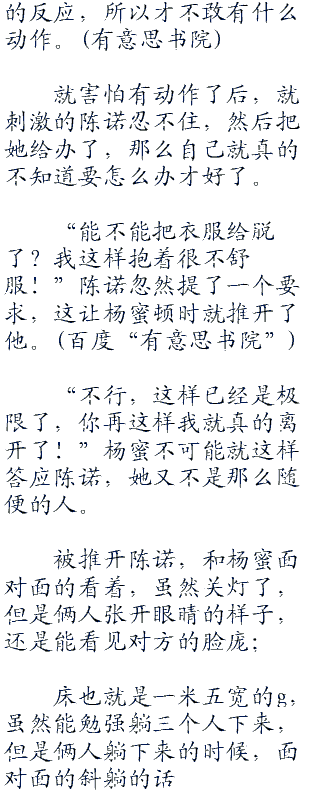 的反应，所以才不敢有什么
动作。(有意思书院)
就害怕有动作了后，就
刺激的陈诺忍不住，然后把
她给办了，那么自己就真的
不知道要怎么办才好了。
“能不能把衣服给脱
了？我这样抱着很不舒
服！”陈诺忽然提了一个要
求，这让杨蜜顿时就推开了
他。(百度“有意思书院”)
“不行，这样已经是极
限了，你再这样我就真的离
开了！”杨蜜不可能就这样
答应陈诺，她又不是那么随
便的人。
被推开陈诺，和杨蜜面
对面的看着，虽然关灯了，
但是俩人张开眼睛的样子，
还是能看见对方的脸庞；
床也就是一米五宽的g，
虽然能勉强躺三个人下来，
但是俩人躺下来的时候，面
对面的斜躺的话